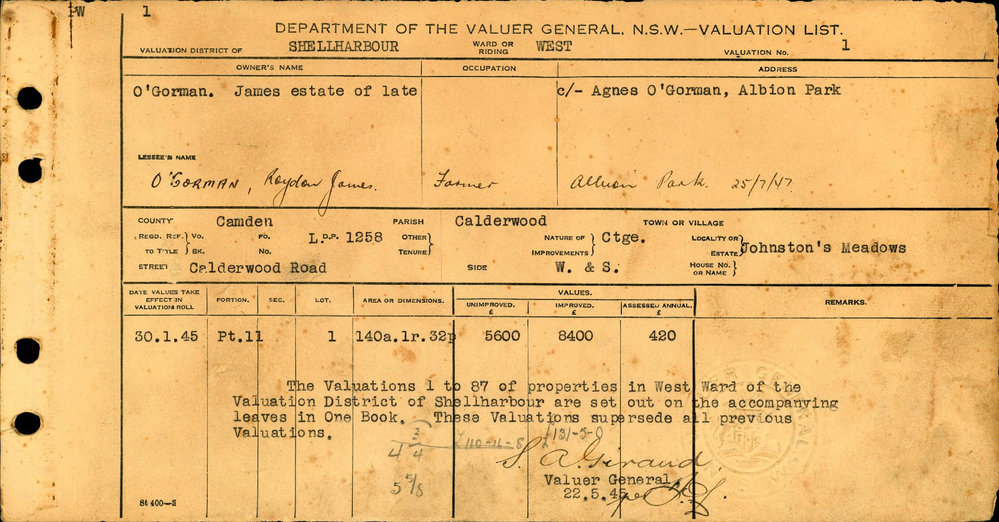 PW 1
DEPARTMENT OF THE VALUER GENERAL, N.S.W.—VALUATION LIST.
VALUATION DISTRICT OF SHELLHARBOUR WARD OR RIDING WEST VALUATION No. 1
OWNER'S NAME OCCUPATION ADDRESS
O'Gorman. James estate of late c/- Agnes O'Gorman, Albion Park
LESSEE'S NAME
O'GORMAN, Roydon James. Farmer Albion Park. 25/7/47
COUNTY Camden PARISH Calderwood TOWN OR VILLAGE
REGD. REF. TO TITLE } Vo. BK. Fo. No. L.D.P. 1258 OTHER TENURE } NATURE OF IMPROVEMENTS } Ctge. LOCALITY OR ESTATE } Johnston's Meadows
STREET Calderwood Road SIDE W. & S. HOUSE No. OR NAME }
DATE VALUES TAKE EFFECT IN VALUATION ROLL PORTION. SEC. LOT. AREA OR DIMENSIONS. VALUES. UNIMPROVED. £ IMPROVED. £ ASSESSED ANNUAL. £ REMARKS.
30.1.45 Pt.11 1 140a.1r.32p 5600 8400 420
The Valuations 1 to 87 of properties in West Ward of the
Valuation District of Shellharbour are set out on the accompanying
leaves in One Book. These Valuations supersede all previous
Valuations.
4 3/4 £110-11-8 £131-5-0
5 5/8
S. A. Giraud
Valuer General.
22.5.45
St 400—3